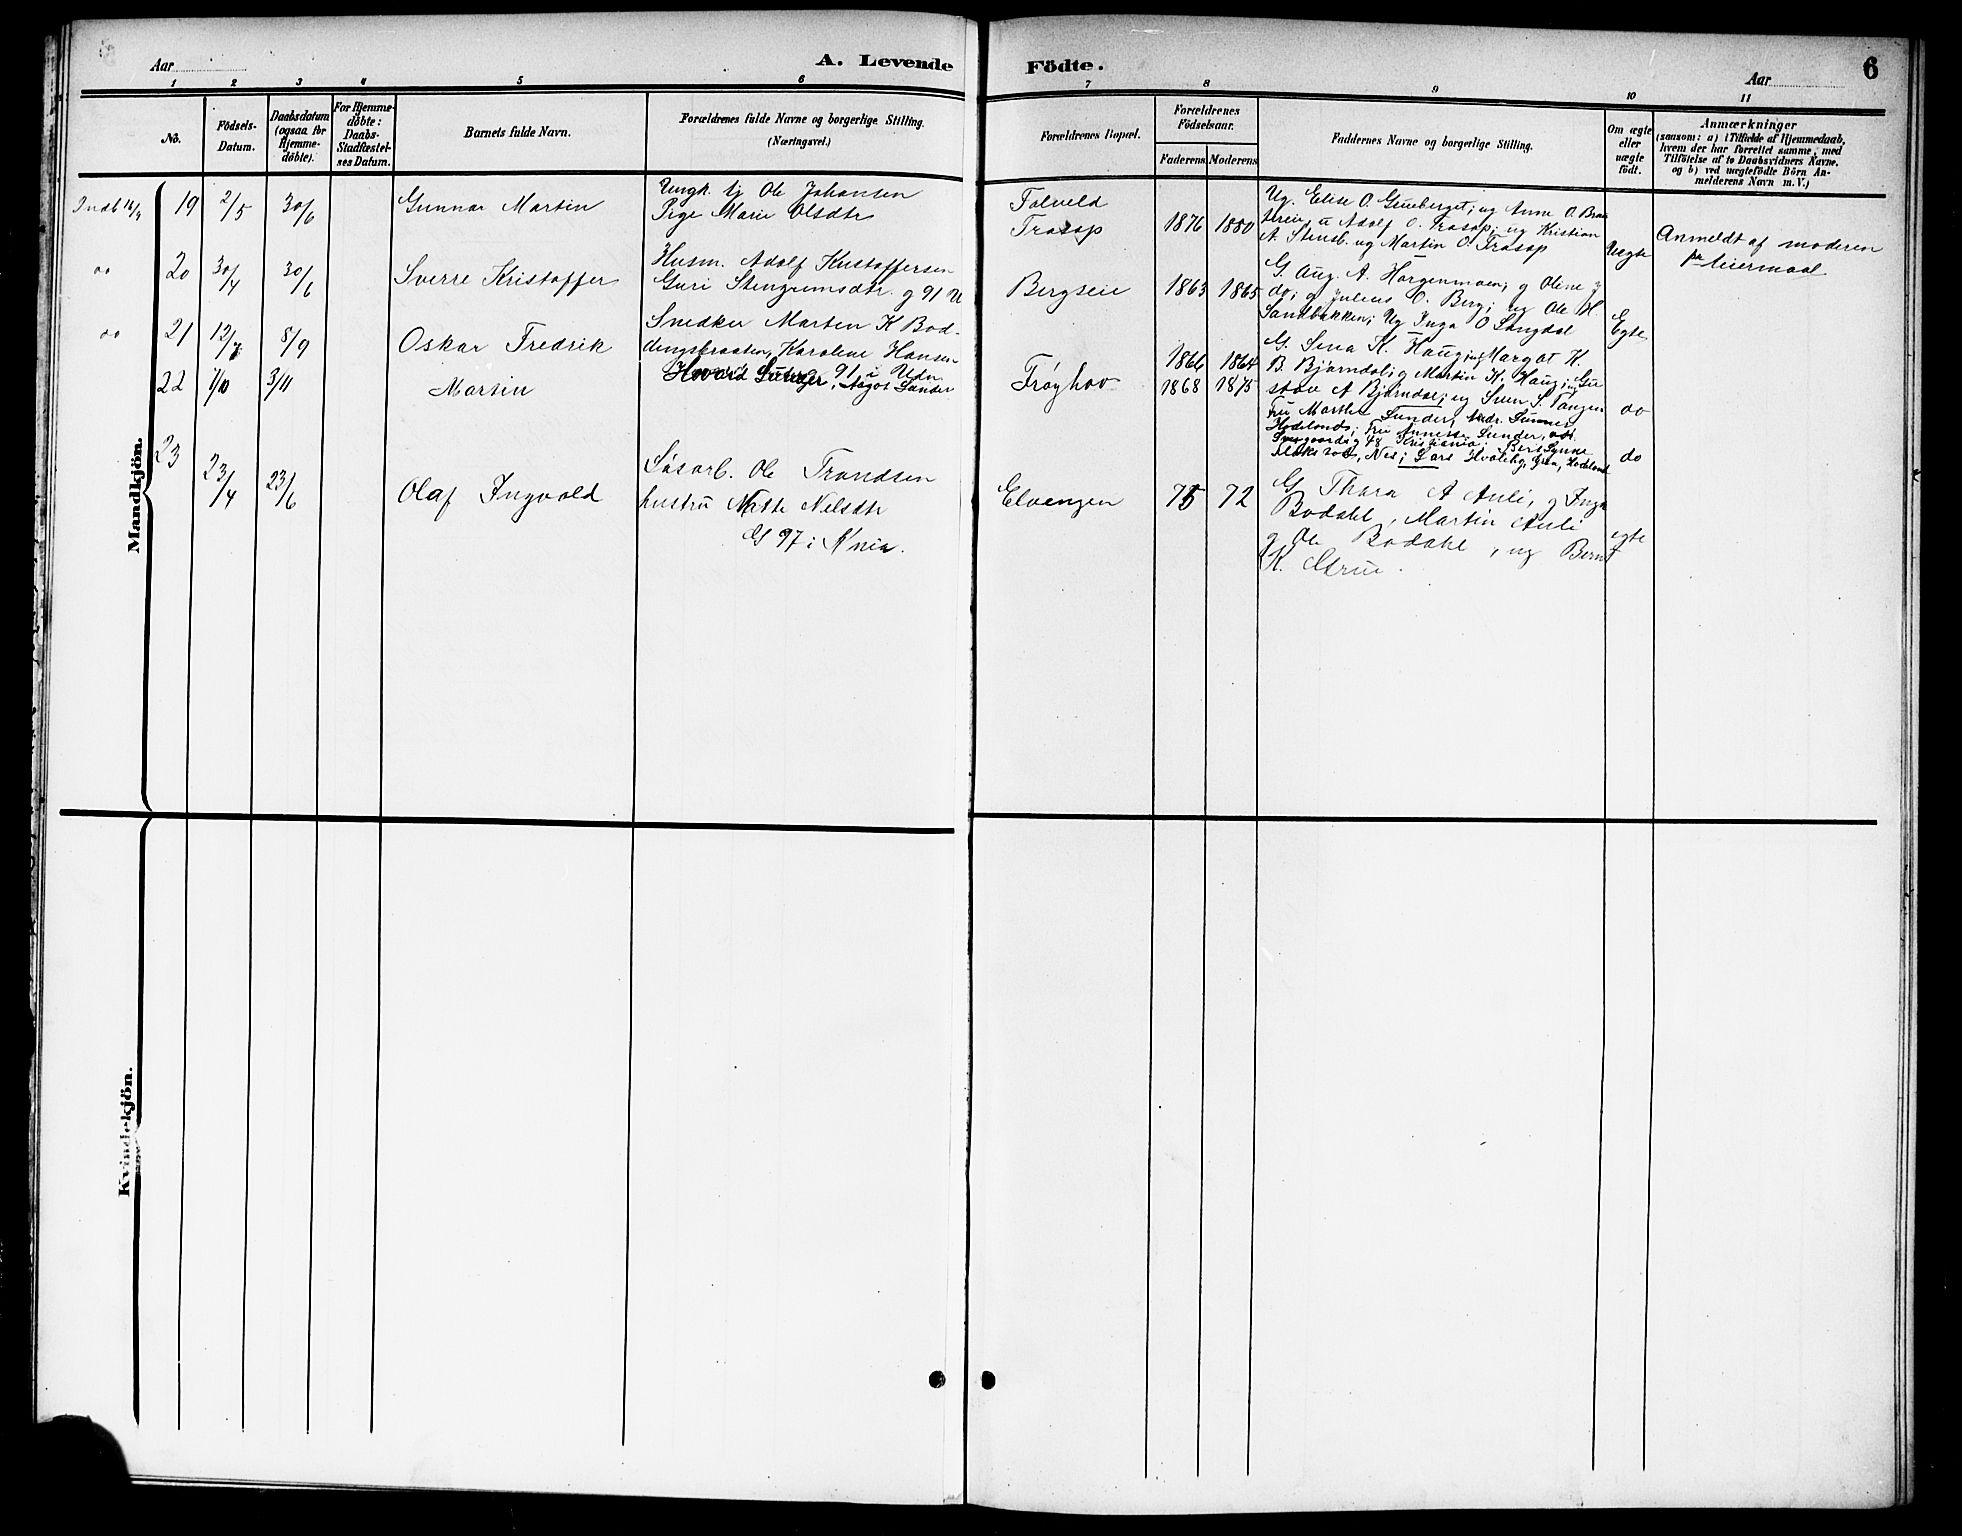 Aar
A. Levende
Födte.
6
Aar
1 2 3 4 5 6 7 8 9 10 11
No.
Födsels-
Datum.
Daabsdatum
(ogsaa for
Hjemme-
döbte).
For Hjemme-
döbte:
Daabs-
Stadfæstel-
ses Datum.
Barnets fulde Navn.
Forældrenes fulde Navne og borgerlige Stilling.
(Næringsvei.)
Forældrenes Bopæl.
Forældrenes
Födselsaar.
Faderens. Moderens.
Faddernes Navne og borgerlige Stilling.
Om ægte
eller
uægte
födt.
Anmærkninger
(saasom: a) i Tilfælde af Hjemmedaab,
hvem der har forrettet samme, med
Tilföielse af to Daabsvidners Navne.
og b) ved uægtefödte Börn An-
melderens Navn m. V.)
Mandkjön.
19 2/5 30/6
Gunnar Martin
Ungk. tj Ole Johansen
Pige Marie Olsdtr
Trasop
1876 1880
Ug. Elise O. Grueberget; ug Anne O. Bra
Adolf O. Trasop; ug Kristian
A. Stensb. ug Martin O. Trasop
Uegte
Anmeldt af moderen
leiermaal
do
20 30/4 30/6
Sverre Kristoffer
Husm. Adolf Kristoffersen
Guri Stengrimsdtr. g 91 U
Bergseie
1863 1865
G. Aug. A. Horgenmoen; g Olene
do; g Julius O. Berg; ug Ole H.
Sandbakken; Ug Inga O Langdal
Egte
do
21 12/7 8/9
Oskar Fredrik
Snedker Martin K Bod-
dingsbraaten, Karoline Hansen
g 91 i Udn
1866 1864
G. Lina K. Haug; ug Margot K.
B. Bjørndal; g Martin K. Haug; Gu
stav A Bjørndal; ug Sven S. Tangen
do
22 1/10 3/11
Martin
Hovard Sunder, Aagot Sunder
Trøghov
1868 1875
Fru Marthe Sunder, Andr. Sunner
Hadelands; Fru Annette Sunder,
48 Kristiania; Bert Synne
Nes; Lars Hvaleby, Gran, Hadeland
do
23 23/4 23/6
Olaf Ingvold
Sasarb. Ole Trondsen
hustru Mathe Nelsdtr
G 97 i
Elvengen
75 72
G Thora A Auli, g Inga
Bodahl, Martin Auli
g Ole Bodahl, ug Bernt
K.
egte
Kvindekjön.